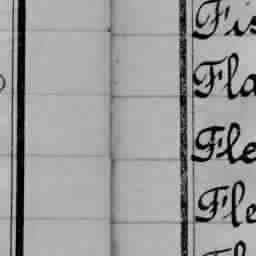 Fis
Fla
Fle
Fle